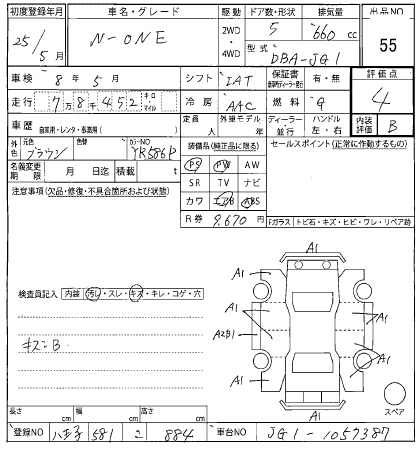 初度登録年月 車名・グレード 駆動 ドア数・形状 排気量 出品NO
25/5月 N-ONE 2WD・4WD 5 660cc 55
型式 DBA-JG1
車検 8年5月 シフト IAT 保証書 有・無 評価点
走行 7万8千452 キロ・マイル 冷房 AAC 燃料 G 4
車歴 自家用・レンタ・事業用( ) 定員 人 外車モデル 年 ディーラー・並行 ハンドル 左・右 内装評価 B
外色 元色 ブラウン 色替 カラーNO YR586P
装備品(純正品に限る) セールスポイント(正常に作動するもの)
名義変更期限 月 日迄 積載 t
PS PW AW
注意事項(欠品・修復・不具合箇所および状態)
SR TV ナビ
カワ エアB ABS
R券 9,670円
Fガラス トビ石・キズ・ヒビ・ワレ・リペア跡
A1
A1 A1
検査員記入 内装 汚れ・スレ・キズ・キレ・コゲ・穴
A2B1 A1
キズ=B
A1 A1
A1
スペア
長さ cm 幅 cm 高さ cm
登録NO 八王子 581 こ 884 車台NO JG1-1057387